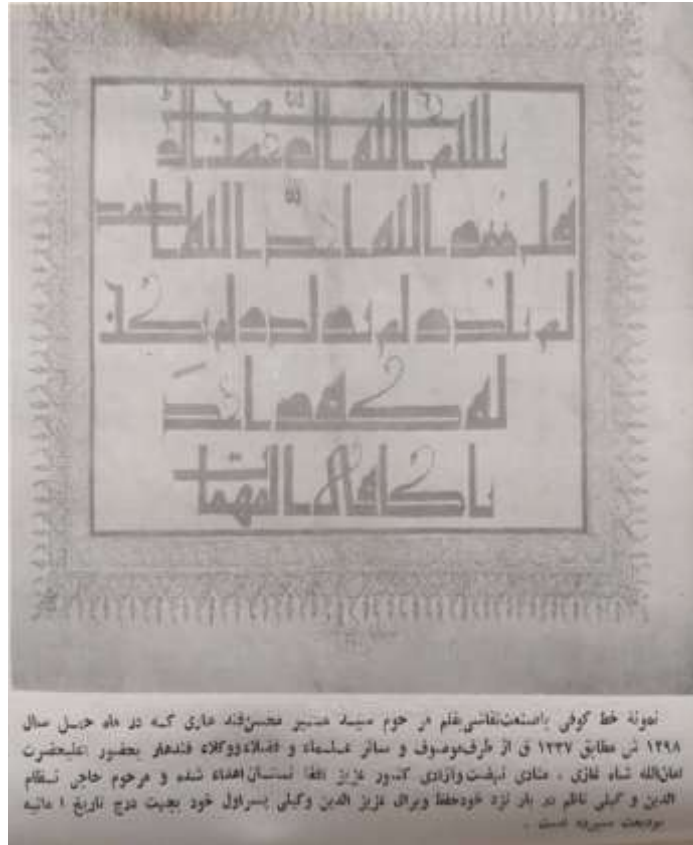 بسم الله الرحمن الر
قل هو الله احد الله الصمد
لم يلد و لم يولد و لم يكن
له كفوا احد
يا كافى المهمات
نمونهٔ خط کوفی باصنعت نقاشی بقلم مر حوم سید محسن قند هاری کـه در ماه حمـل سال
۱۲۹۸ ش مطابق ۱۳۳۷ ق از طرف موصوف و سائر علـماء و فضلاء ووکلاء قندهار بحضور اعلیحضرت
امان‌الله شاه غازی ، منادی نهضت وآزادی کشور عزیز افغا نستـان اهداء شده و مرحوم حاجی نـظام
الدین وکیلی ناظم در بار نزد خودحفظ وبرای عزیز الدین وکیلی پسراول خود بجهت درج تاریخ امانیه
بودیعت سپرده است .